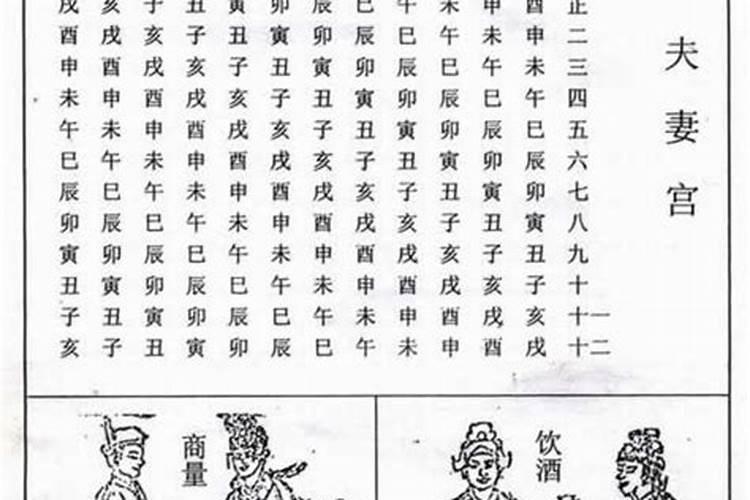 夫妻宫
正二三四五六七八九十十一十二
酉申未午巳辰卯寅丑子亥戌
申未午巳辰卯寅丑子亥戌酉
未午巳辰卯寅丑子亥戌酉申
午巳辰卯寅丑子亥戌酉申未
巳辰卯寅丑子亥戌酉申未午
辰卯寅丑子亥戌酉申未午巳
卯寅丑子亥戌酉申未午巳辰
寅丑子亥戌酉申未午巳辰卯
丑子亥戌酉申未午巳辰卯寅
子亥戌酉申未午巳辰卯寅丑
亥戌酉申未午巳辰卯寅丑子
戌酉申未午巳辰卯寅丑子亥
饮酒
商量